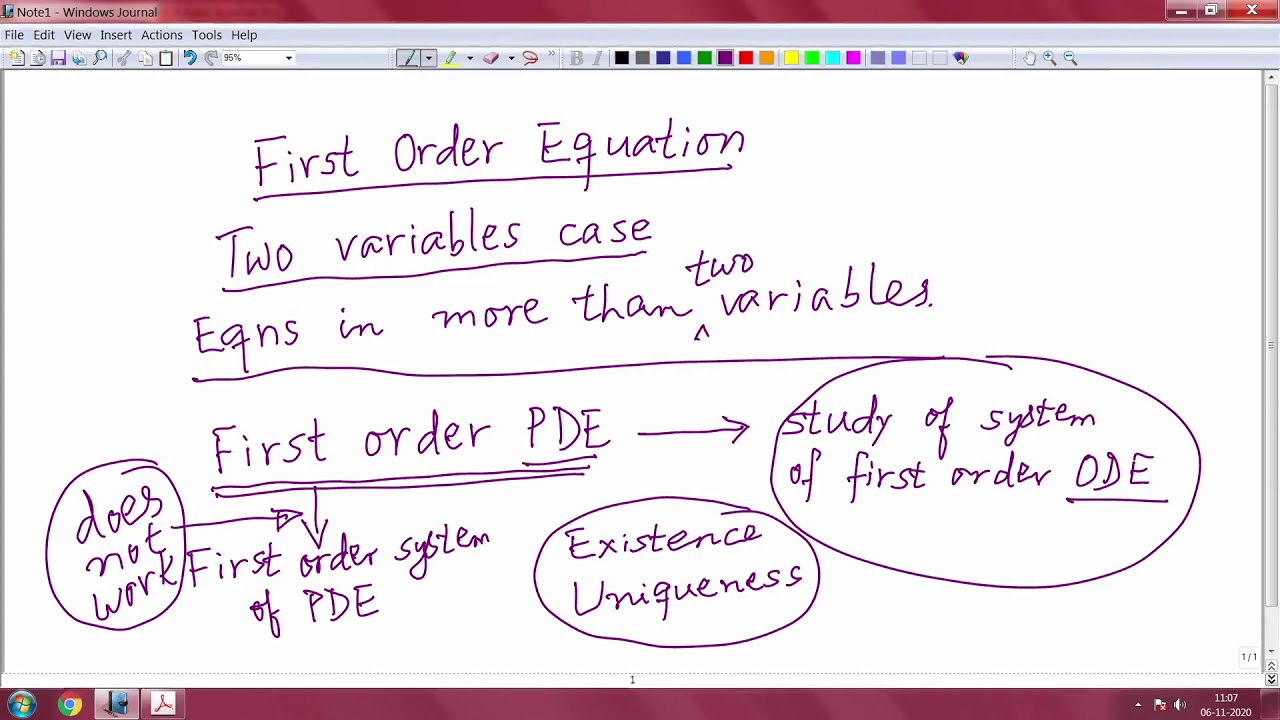 Note1 - Windows Journal
File Edit View Insert Actions Tools Help
95%
B I
First Order Equation
Two variables case
two
Eqns in more than ^ variables.
First order PDE → study of system
of first order ODE
does
not
work
First order system
of PDE
Existence
Uniqueness
1/1
1
11:07
06-11-2020